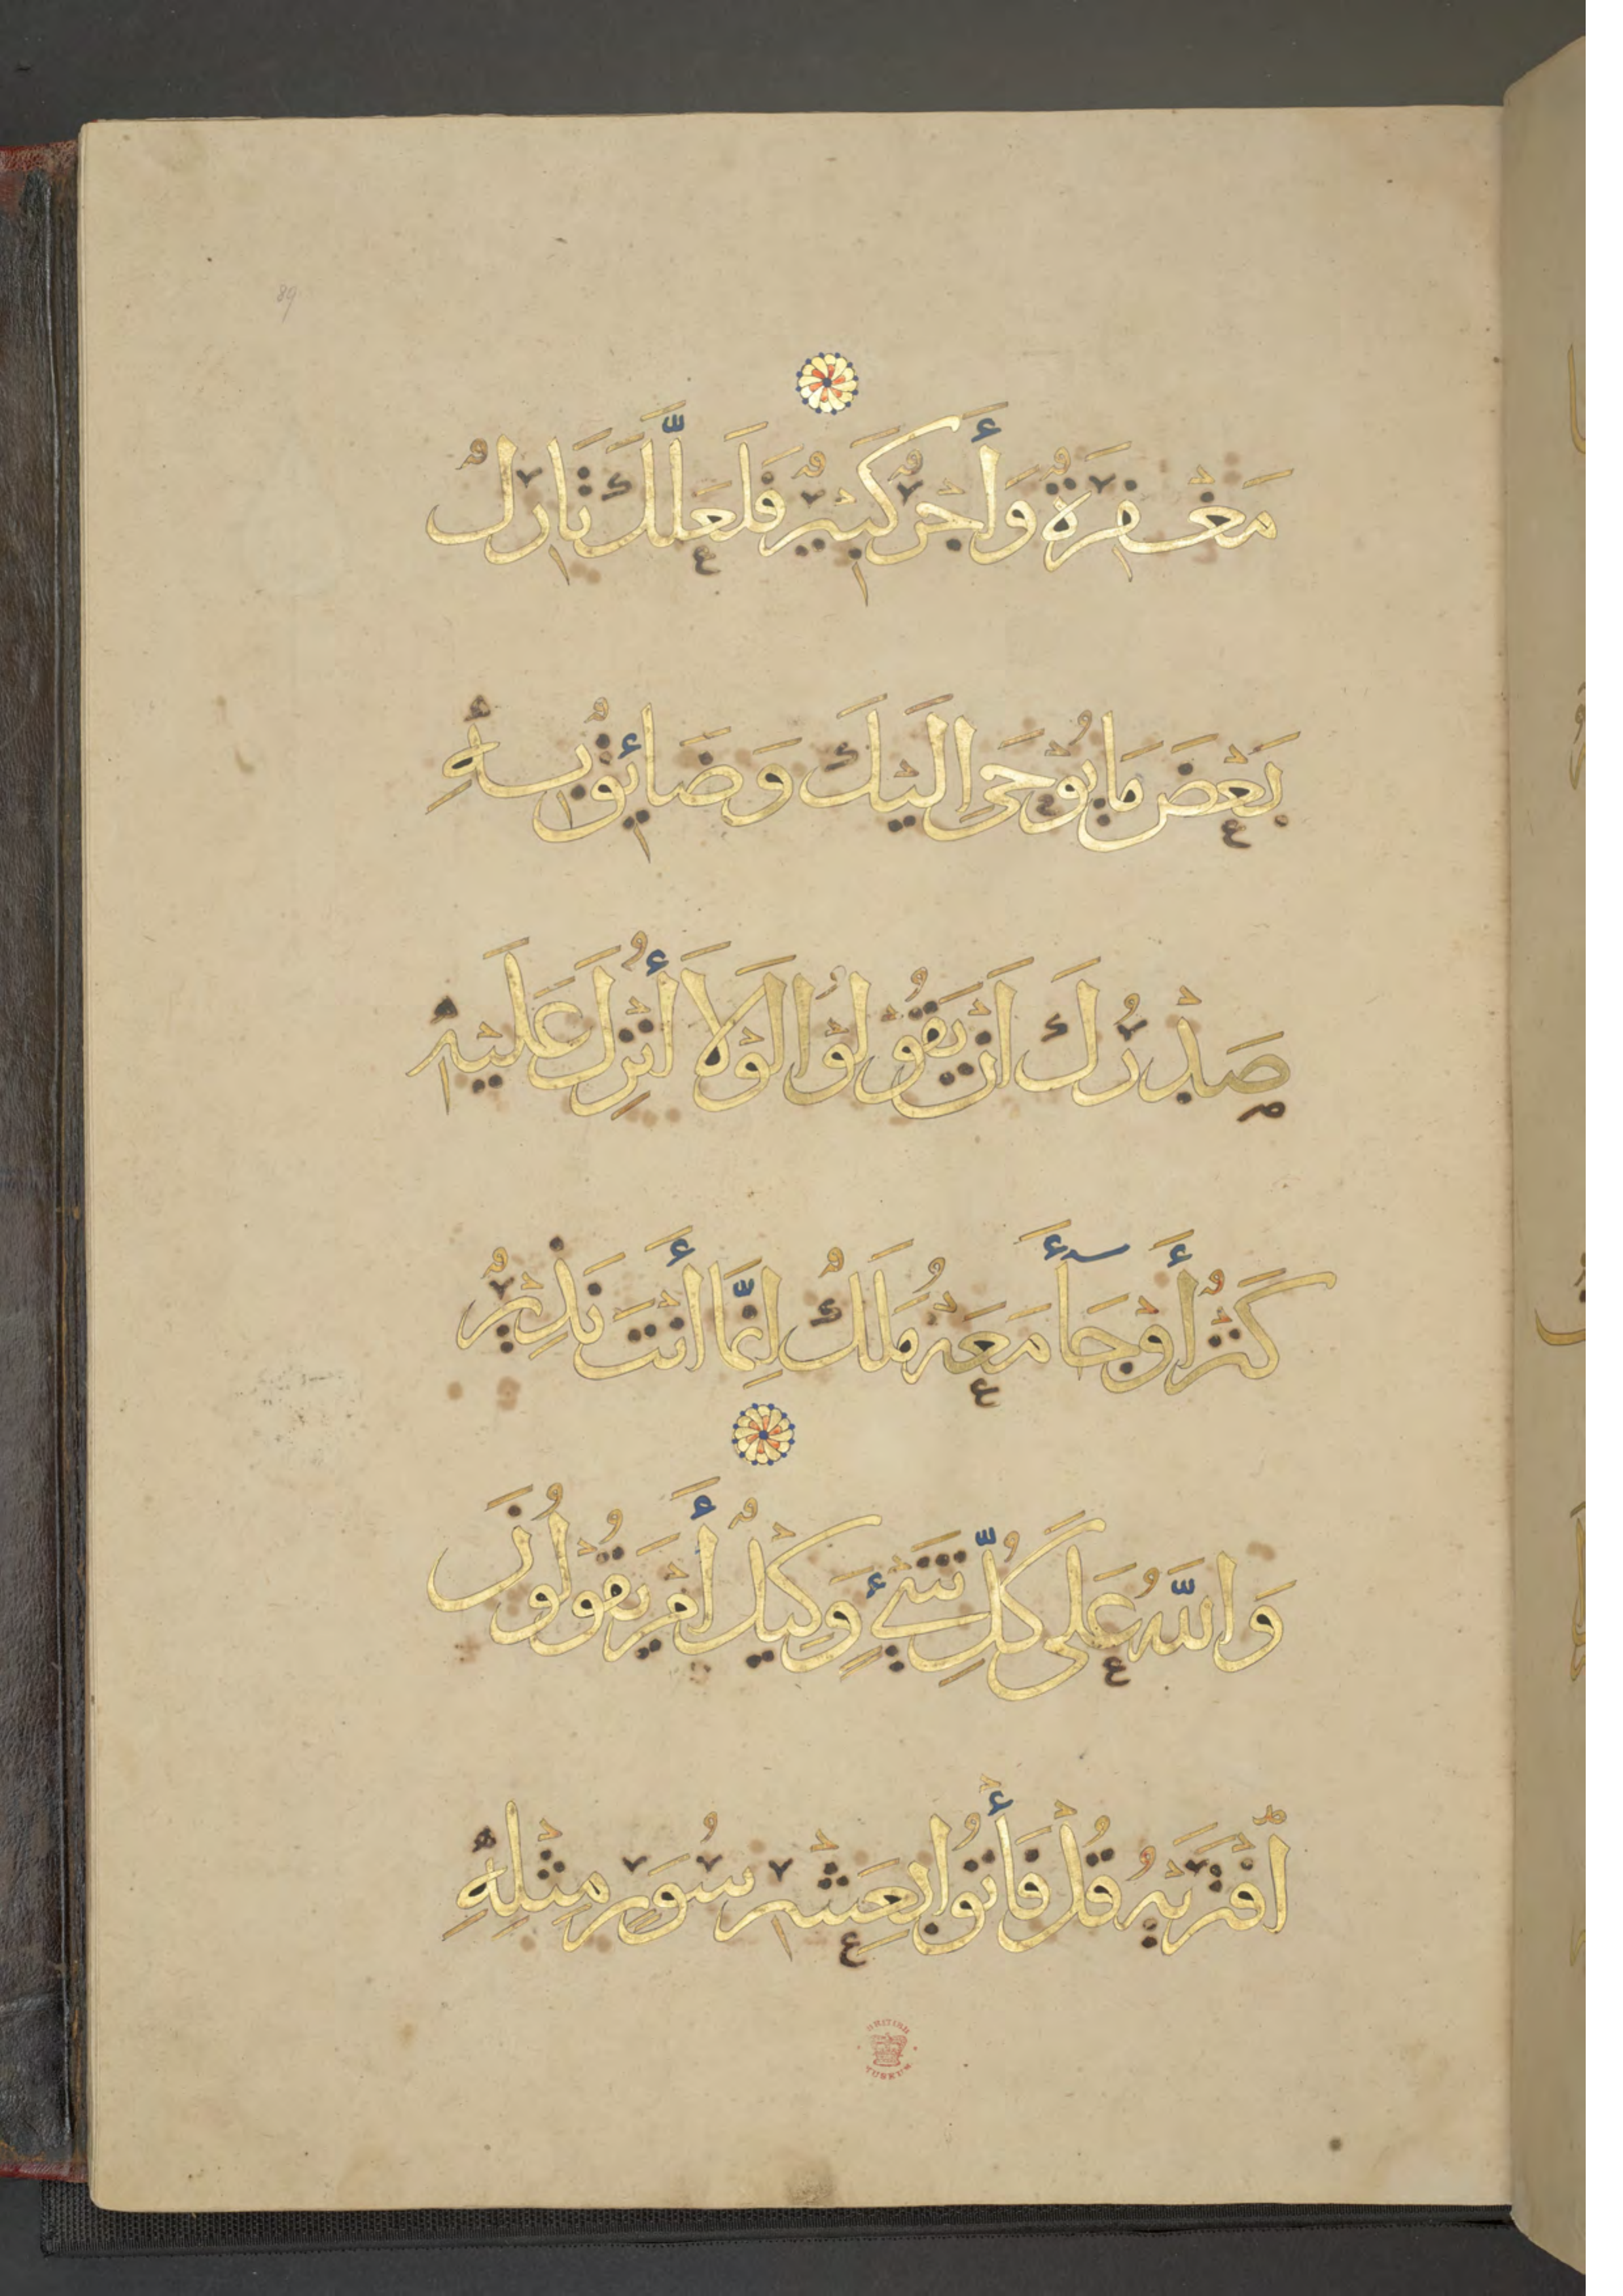 89
مَغْفِرَةٌ وَأَجْرٌ كَبِيرٌ فَلَعَلَّكَ تَارِكٌ
بَعْضَ مَا يُوْحَى اِلَيْكَ وَضَائِقٌ بِهِ
صَدْرُكَ اَنْ يَقُوْلُوْا لَوْلَا أُنْزِلَ عَلَيْهِ
كَنْزٌ أَوْجَآأَ مَعَهُ مَلَكٌ اِنَّمَا أَنْتَ نَذِيْرٌ
وَاللّٰهُ عَلَى كُلِّ شَيْءٍ وَكِيْلٌ أَمْ يَقُوْلُوْنَ
افْتَرَيهُ قُلْ فَأْتُوْا بِعَشْرِ سُوَرٍ مِثْلِهِ
BRITISH
MUSEUM